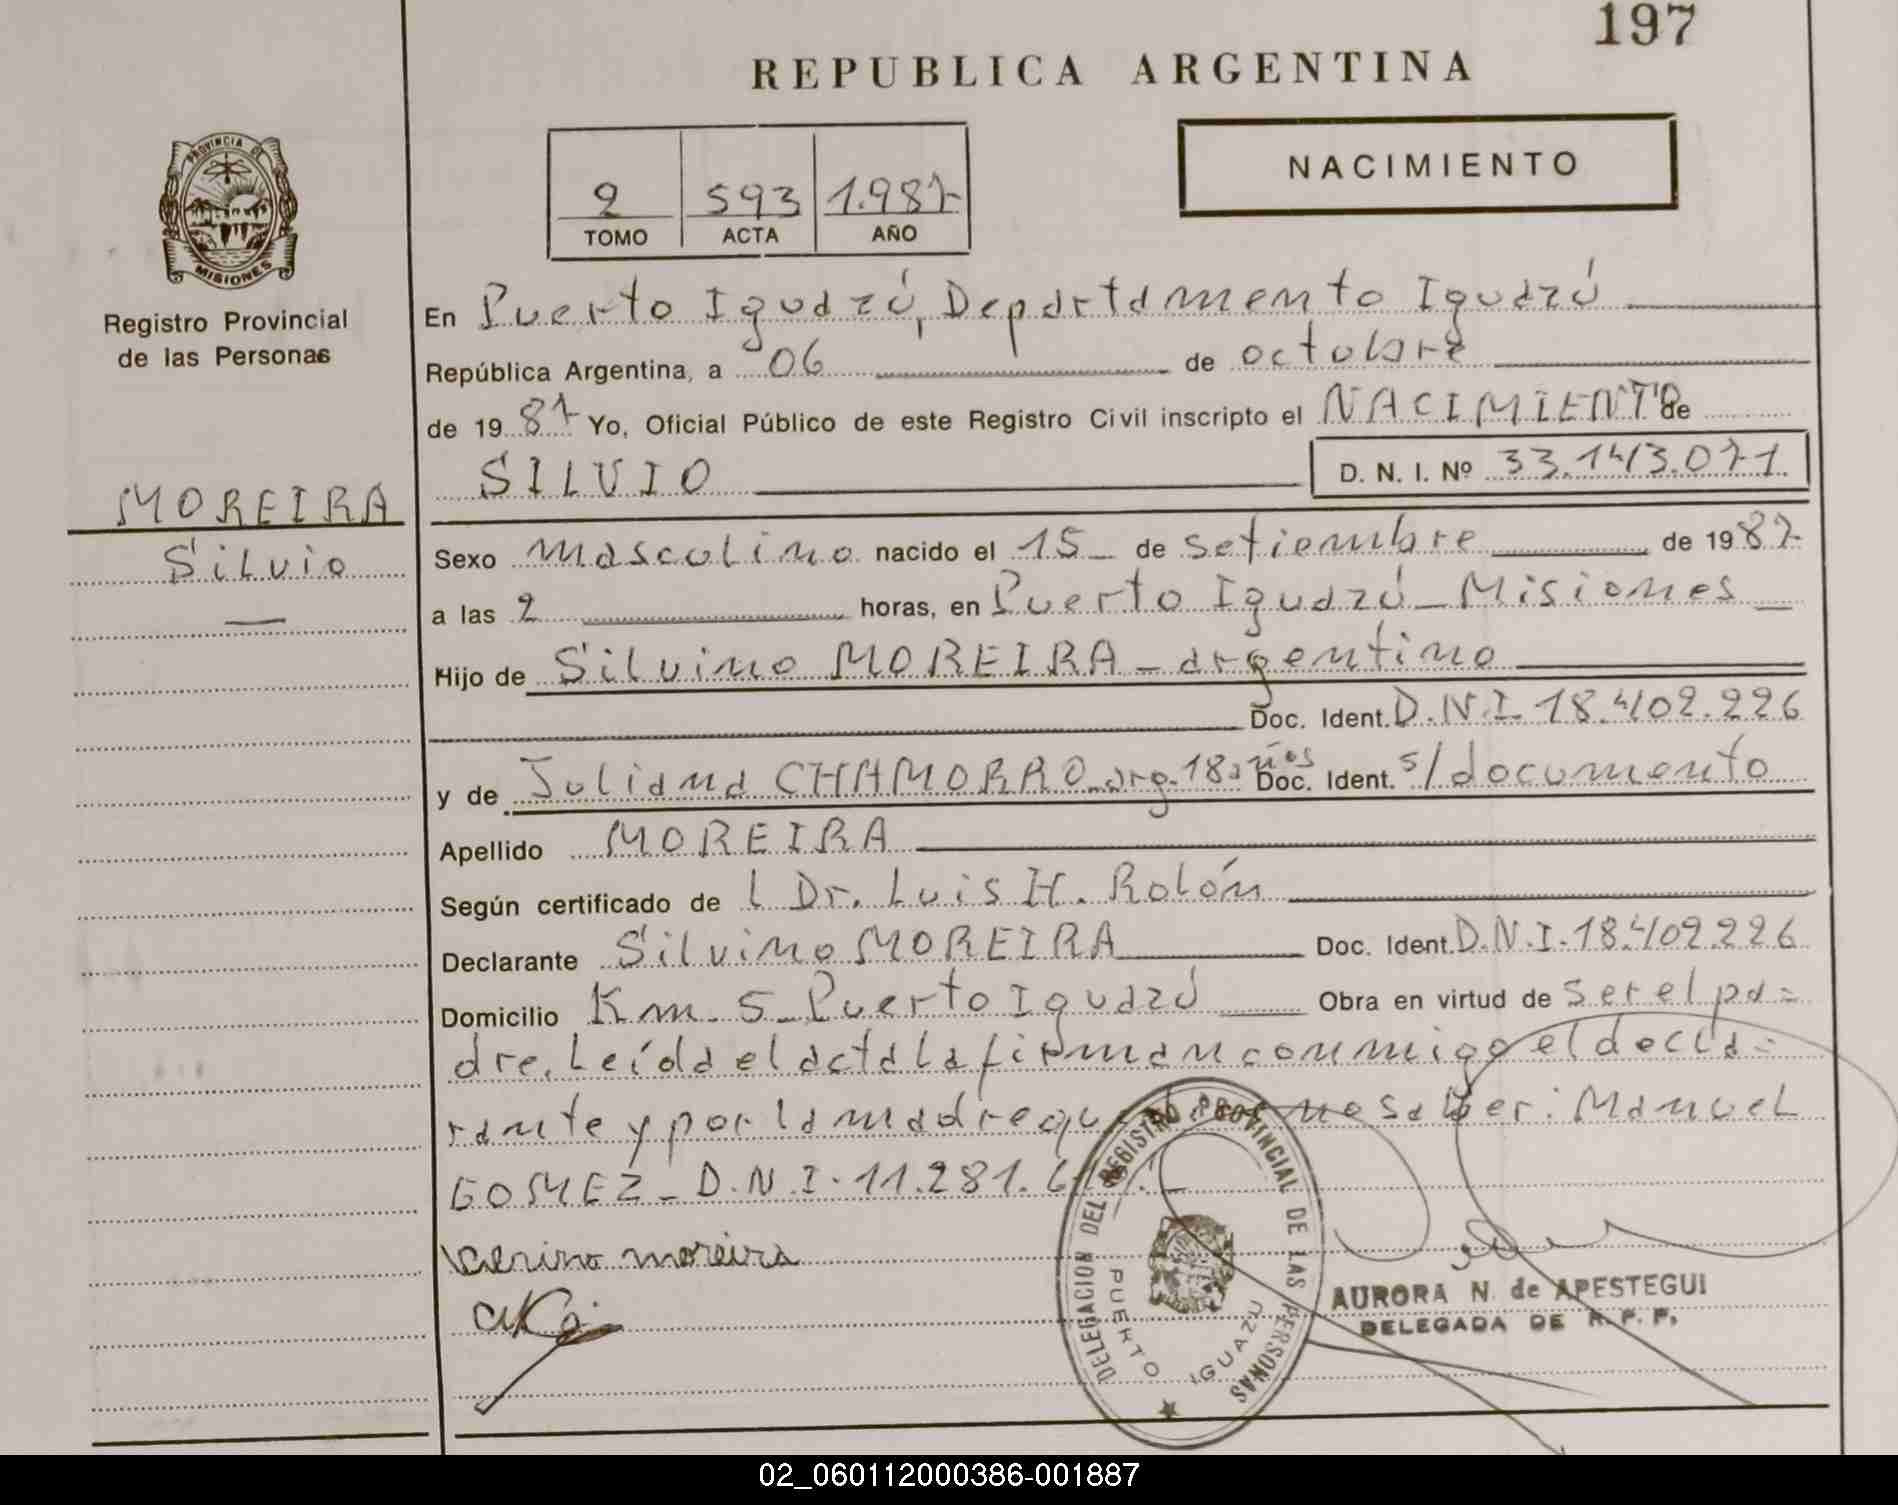 197
REPUBLICA ARGENTINA
NACIMIENTO
2 593 1.987
TOMO ACTA AÑO
PROVINCIA DE
MISIONES
Registro Provincial
de las Personas
MOREIRA
Silvio
En Puerto Iguazú, Departamento Iguazú
República Argentina, a 06 de octubre
de 1987 Yo, Oficial Público de este Registro Civil inscripto el NACIMIENTO de
SILVIO D. N. I. Nº 33.143.071
Sexo masculino nacido el 15 de setiembre de 1987
a las 2 horas, en Puerto Iguazú - Misiones
Hijo de Silvino MOREIRA - argentino
Doc. Ident. D.N.I. 18.402.226
y de Juliana CHAMORRO - arg. 18 años Doc. Ident. s/documento
Apellido MOREIRA
Según certificado de l Dr. Luis H. Rolón
Declarante Silvino MOREIRA Doc. Ident. D.N.I. 18.402.226
Domicilio Km. 5 - Puerto Iguazú Obra en virtud de ser el pa=
dre. Leída el acta la firman conmigo el decla=
rante y por la madre que no saber: Manuel
GOMEZ - D.N.I. 11.281.
moreira
DELEGACION DEL REGISTRO PROVINCIAL DE LAS PERSONAS
PUERTO IGUAZU
AURORA N. de APESTEGUI
DELEGADA DE R. P. P.
02_060112000386-001887